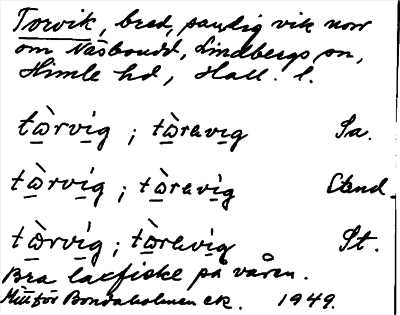 Torvik, bred, sandig vik norr
om Näsboudd, Lindbergs sn,
Himle hd, Hall. l.
tὼ̲rvi̲g ; tὼ̲ravi̲g Sa.
tὼ̲rvi̲g ; tὼ̲ravi̲g
tὼ̲rvi̲g ; tὼ̲ravi̲g St.
Bra laxfiske på våren.
Mitt för Bondaholmen ek. 1949.